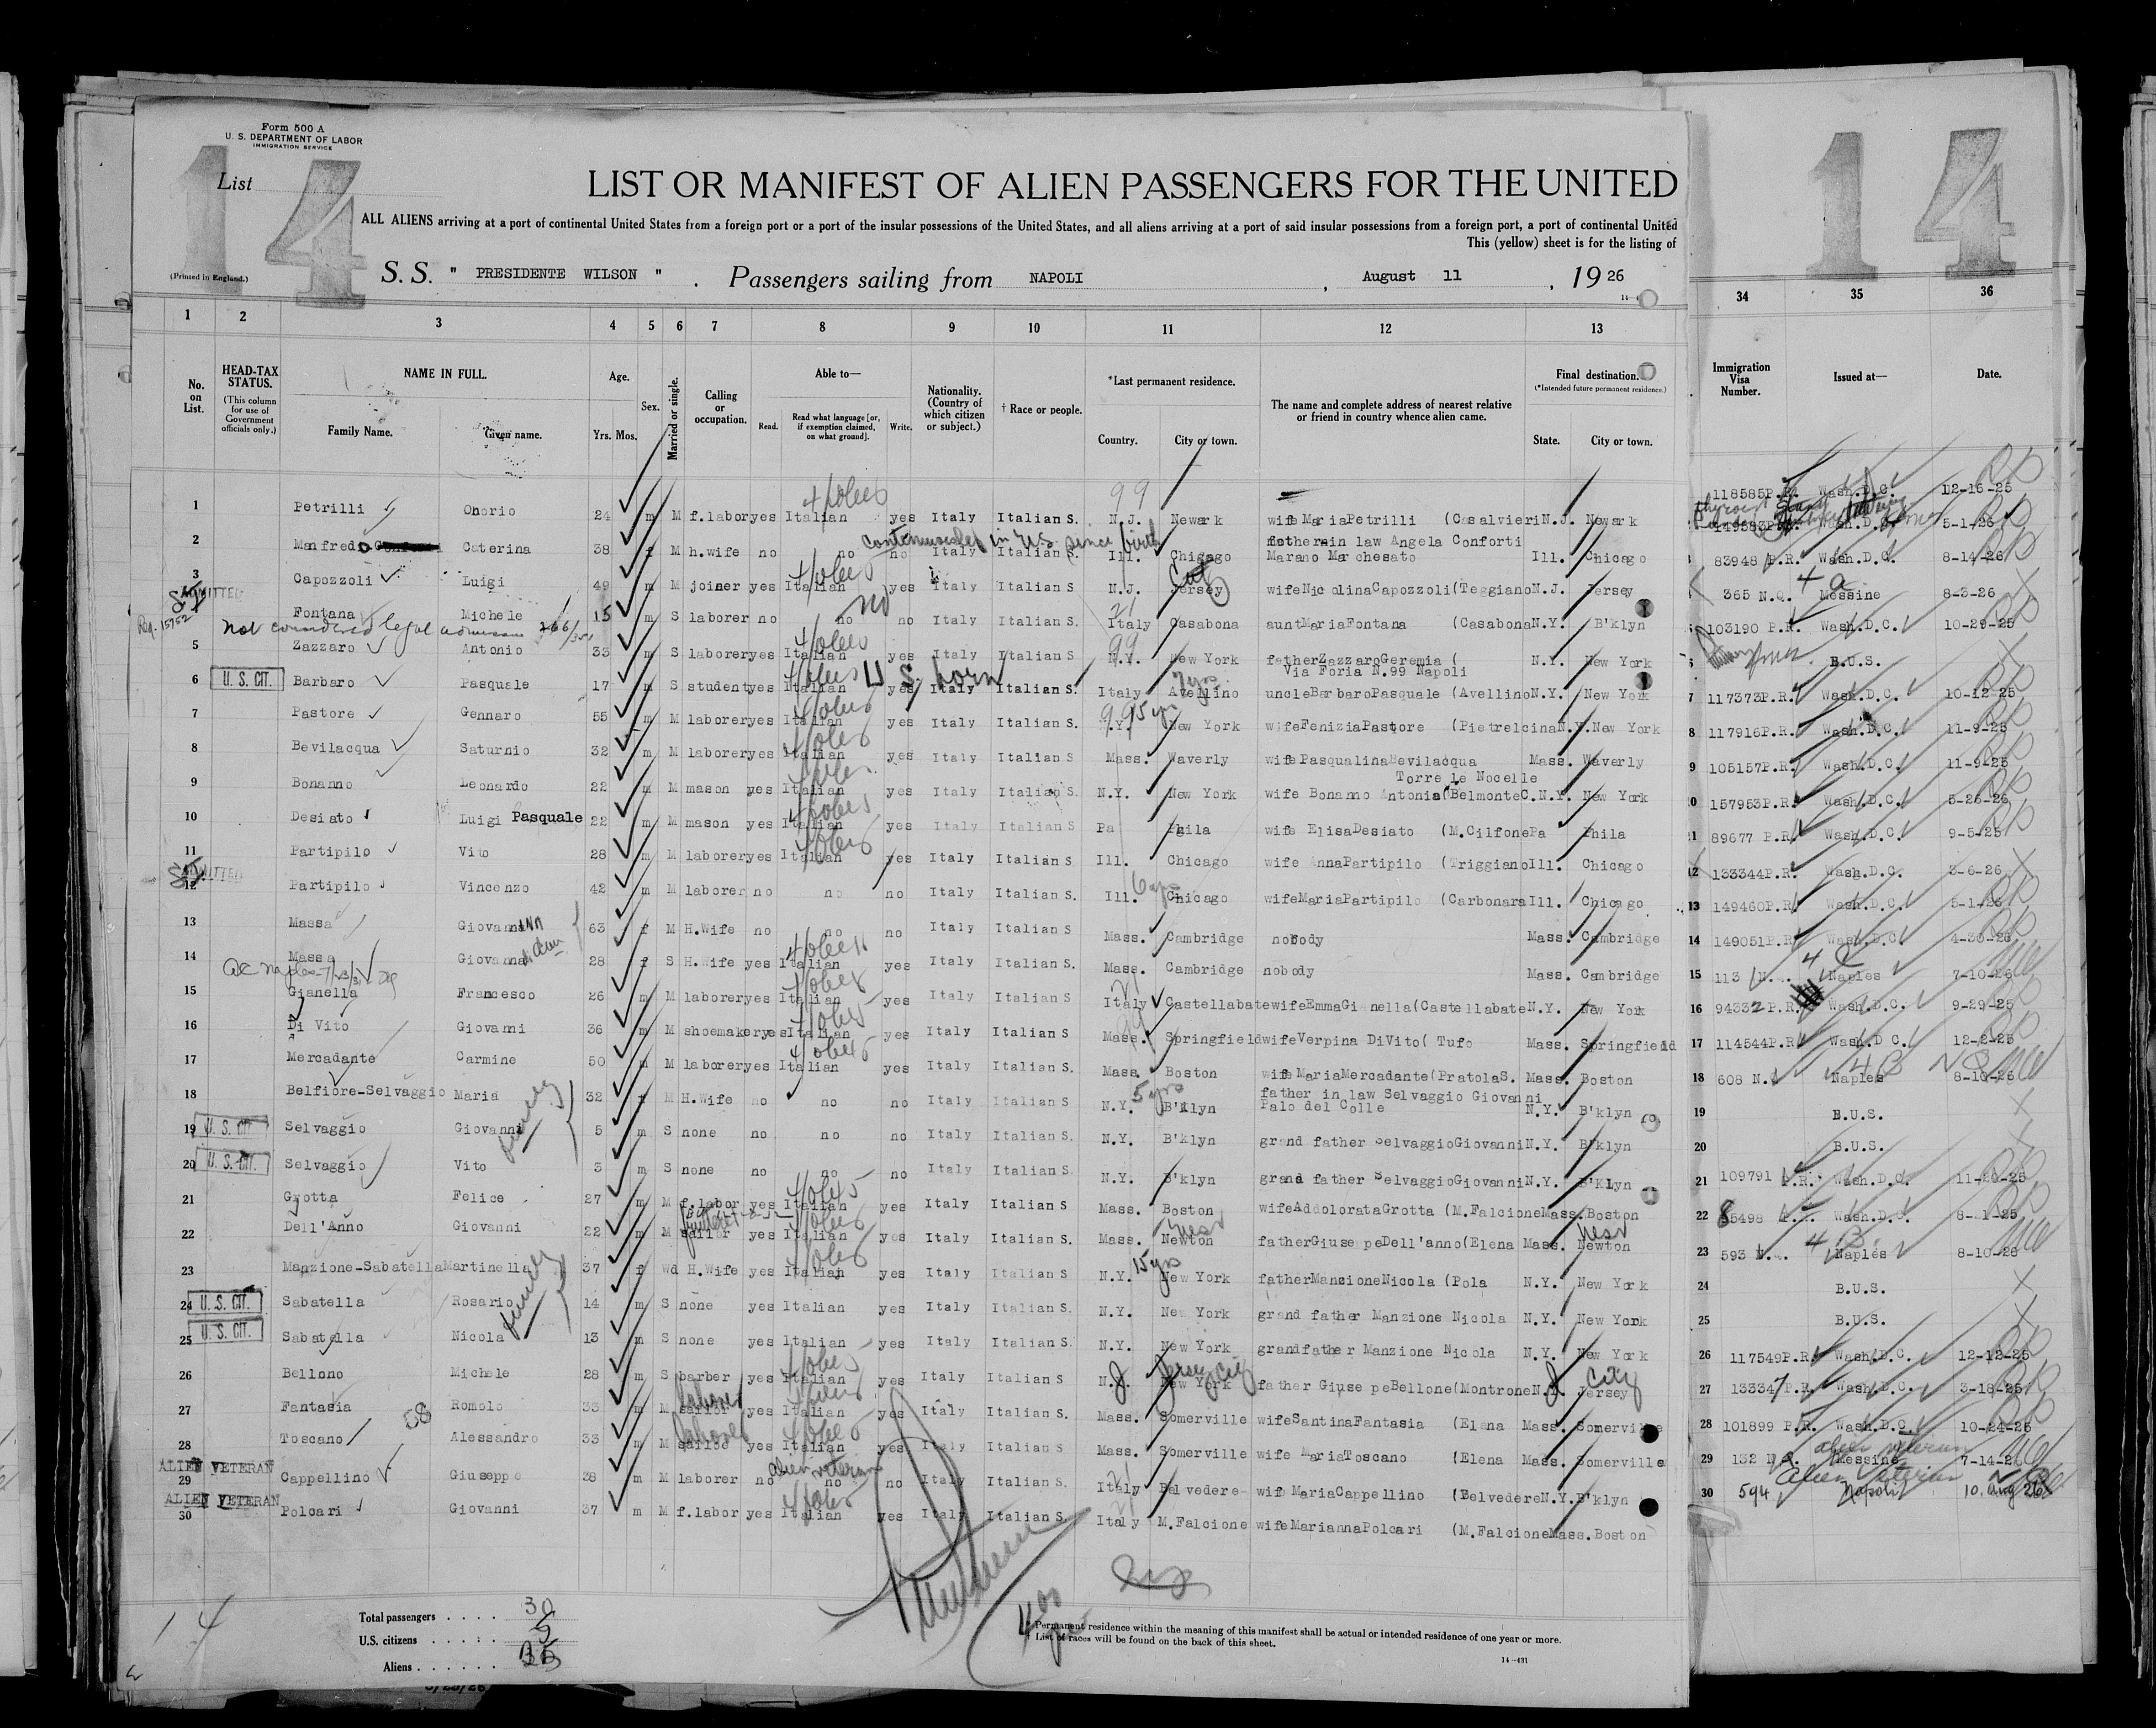 Form 500 A
U. S. DEPARTMENT OF LABOR
IMMIGRATION SERVICE
14
14
List
LIST OR MANIFEST OF ALIEN PASSENGERS FOR THE UNITED
ALL ALIENS arriving at a port of continental United States from a foreign port or a port of the insular possessions of the United States, and all aliens arriving at a port of said insular possessions from a foreign port, a port of continental United
This (yellow) sheet is for the listing of
(Printed in England.)
S. S. " PRESIDENTE WILSON " . Passengers sailing from NAPOLI , August 11 , 19 26
1 2 3 4 5 6 7 8 9 10 11 12 13 34 35 36
No. on List.
HEAD-TAX STATUS.
(This column for use of Government officials only.)
NAME IN FULL.
Family Name. Given name.
Age.
Yrs. Mos.
Sex.
Married or single.
Calling or occupation.
Able to—
Read. Read what language [or, if exemption claimed, on what ground]. Write.
Nationality. (Country of which citizen or subject.)
† Race or people.
*Last permanent residence.
Country. City or town.
The name and complete address of nearest relative or friend in country whence alien came.
Final destination.
(*Intended future permanent residence.)
State. City or town.
Immigration Visa Number.
Issued at—
Date.
1 Petrilli Onorio 24 m M f.labor yes Italian yes Italy Italian S. N.J. Newark wife Maria Petrilli (Casalvieri N.J. Newark 118585 P.R. Wash.D.C. 12-16-25
continuously in U.S. since birth
2 Manfredo Caterina 38 f M h.wife no no no Italy Italian S Ill. Chicago mother in law Angela Conforti Marano Marchesato Ill. Chicago Wash.D.C. 5-1-26
3 Capozzoli Luigi 49 m M joiner yes Italian yes Italy Italian S N.J. Jersey City wife Nicolina Capozzoli (Teggiano N.J. Jersey 83948 P.R. Wash.D.C. 8-14-26
ADMITTED
Fontana Michele 15 m S laborer no no no Italy Italian S Italy Casabona aunt Maria Fontana (Casabona N.Y. B'klyn 365 N.Q. Messine 8-3-26
Not considered legal admission
5 Zazzaro Antonio 33 m S laborer yes Italian yes Italy Italian S N.Y. New York father Zazzaro Geremia ( Via Foria N.99 Napoli N.Y. New York 103190 P.R. Wash.D.C. 10-29-25
6 U. S. CIT. Barbaro Pasquale 17 m S student yes Italian yes U S born Italy Italian S. Italy Avellino uncle Barbaro Pasquale (Avellino N.Y. New York B.U.S.
7 Pastore Gennaro 55 m M laborer yes Italian yes Italy Italian S. N.Y. New York wife Fenizia Pastore (Pietrelcina N.Y. New York 117373 P.R. Wash.D.C. 10-12-25
8 Bevilacqua Saturnio 32 m M laborer yes Italian yes Italy Italian S Mass. Waverly wife Pasqualina Bevilacqua Torre le Nocelle Mass. Waverly 117916 P.R. Wash.D.C. 11-9-25
9 Bonanno Leonardo 22 m M mason yes Italian yes Italy Italian S. N.Y. New York wife Bonanno Antonia (Belmonte C. N.Y. New York 105157 P.R. Wash.D.C. 11-9-25
10 Desiato Luigi Pasquale 22 m M mason yes Italian yes Italy Italian S Pa Phila wife Elisa Desiato (M.Cilfone Pa Phila 157953 P.R. Wash.D.C. 5-26-26
11 Partipilo Vito 28 m M laborer yes Italian yes Italy Italian S Ill. Chicago wife Anna Partipilo (Triggiano Ill. Chicago 89677 P.R. Wash.D.C. 9-5-25
ADMITTED
12 Partipilo Vincenzo 42 m M laborer no no no Italy Italian S. Ill. Chicago wife Maria Partipilo (Carbonara Ill. Chicago 133344 P.R. Wash.D.C. 3-6-26
13 Massa Giovanna 63 f M H.Wife no no no Italy Italian S Mass. Cambridge nobody Mass. Cambridge 149460 P.R. Wash.D.C. 5-1-26
14 Massa Giovanna 28 f S H.Wife yes Italian yes Italy Italian S. Mass. Cambridge nobody Mass. Cambridge 149051 P.R. Wash.D.C. 4-30-26
15 Gianella Francesco 26 m M laborer yes Italian yes Italy Italian S Italy Castellabate wife Emma Gianella (Castellabate N.Y. New York 113 Naples 7-10-26
16 Di Vito Giovanni 36 m M shoemaker yes Italian yes Italy Italian S Mass. Springfield wife Verpina DiVito ( Tufo Mass. Springfield 94332 P.R. Wash.D.C. 9-29-25
17 Mercadante Carmine 50 m M laborer yes Italian yes Italy Italian S Mass. Boston wife Maria Mercadante (Pratola S. Mass. Boston 114544 P.R. Wash.D.C. 12-2-25
18 Belfiore-Selvaggio Maria 32 f M H.Wife no no no Italy Italian S N.Y. 5 yrs B'klyn father in law Selvaggio Giovanni Palo del Colle N.Y. B'klyn 608 N. Naples 8-10-26
19 U. S. CIT. Selvaggio Giovanni 5 m S none no no no Italy Italian S. N.Y. B'klyn grand father Selvaggio Giovanni N.Y. B'klyn B.U.S.
20 U. S. CIT. Selvaggio Vito 3 m S none no no no Italy Italian S N.Y. B'klyn grand father Selvaggio Giovanni N.Y. B'Klyn B.U.S.
family
21 Grotta Felice 27 m M f.labor yes Italian yes Italy Italian S. Mass. Boston wife Addolorata Grotta (M.Falcione Mass. Boston 109791 P.R. Wash.D.C. 11-20-25
22 Dell'Anno Giovanni 22 m M sailor yes Italian yes Italy Italian S. Mass. West Newton father Giuseppe Dell'anno (Elena Mass. West Newton 85498 Wash.D.C. 8-1-25
23 Manzione-Sabatella Martinella 37 f Wd H.Wife yes Italian yes Italy Italian S N.Y. 15 yrs New York father Manzione Nicola (Pola N.Y. New York 593 Naples 8-10-26
24 U. S. CIT. Sabatella Rosario 14 m S none yes Italian yes Italy Italian S. N.Y. New York grand father Manzione Nicola N.Y. New York B.U.S.
25 U. S. CIT. Sabatella Nicola 13 m S none yes Italian yes Italy Italian S. N.Y. New York grandfather Manzione Nicola N.Y. New York B.U.S.
family
26 Bellono Michele 28 m S barber yes Italian yes Italy Italian S N.J. Jersey City New York father Giuseppe Bellone (Montrone N.J. Jersey City 117549 P.R. Wash.D.C. 12-12-25
27 Fantasia Romolo 33 m M sailor laborer yes Italian yes Italy Italian S. Mass. Somerville wife Santina Fantasia (Elena Mass. Somerville 133347 P.R. Wash.D.C. 3-18-26
28 Toscano 58 Alessandro 33 m M sailor laborer yes Italian yes Italy Italian S Mass. Somerville wife Maria Toscano (Elena Mass. Somerville 101899 P.R. Wash.D.C. 10-24-25
ALIEN VETERAN
29 Cappellino Giuseppe 38 m M laborer no no no alien veteran Italy Italian S. Italy Belvedere wife Maria Cappellino (Belvedere N.Y. B'klyn 132 Messine 7-14-26 alien veteran
ALIEN VETERAN
30 Polcari Giovanni 37 m M f.labor yes Italian yes Italy Italian S. Italy M.Falcione wife Marianna Polcari (M.Falcione Mass. Boston 594 Napoli 10. Aug 26 alien veteran
14
Total passengers . . . . 30
U.S. citizens . . . . . 5
Aliens . . . . . . 25
* Permanent residence within the meaning of this manifest shall be actual or intended residence of one year or more.
† List of races will be found on the back of this sheet.
14—431